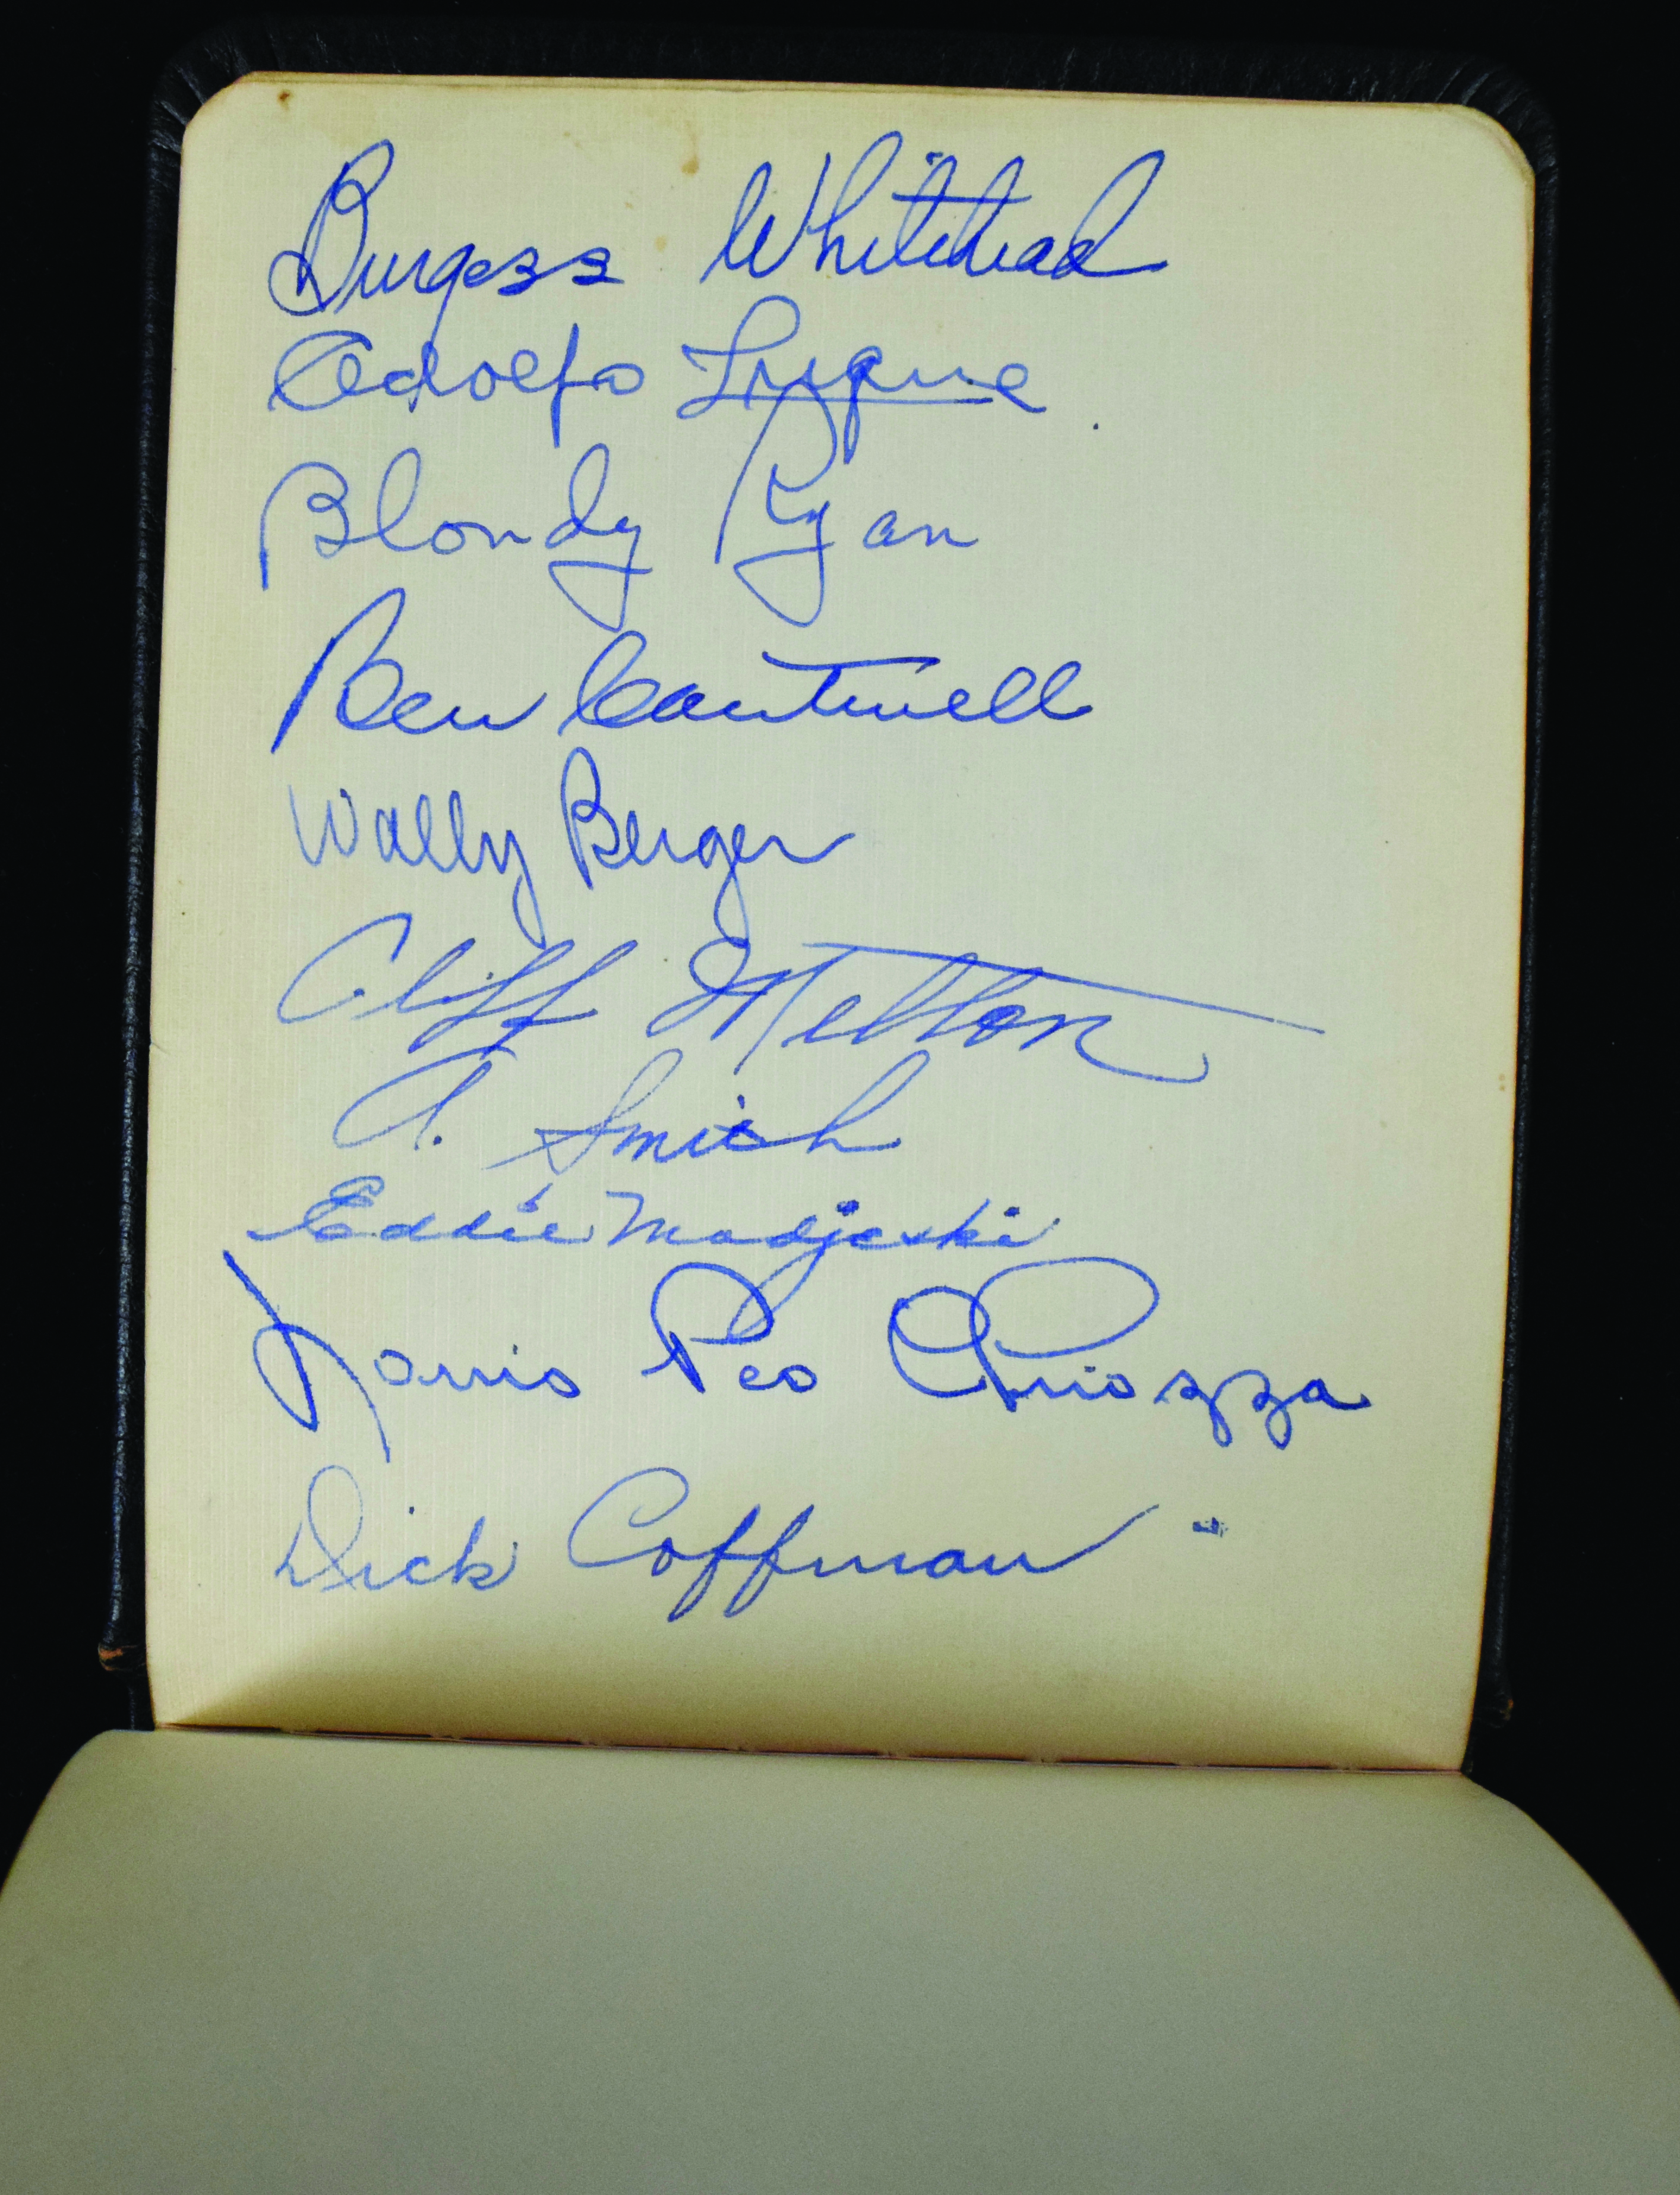 Burgess Whitehead
Adolfo Luque
Blondy Ryan
Ben Cantwell
Wally Berger
Cliff Melton
A. Smith
Eddie Madjeski
Louis Peo Chiozza
Dick Coffman